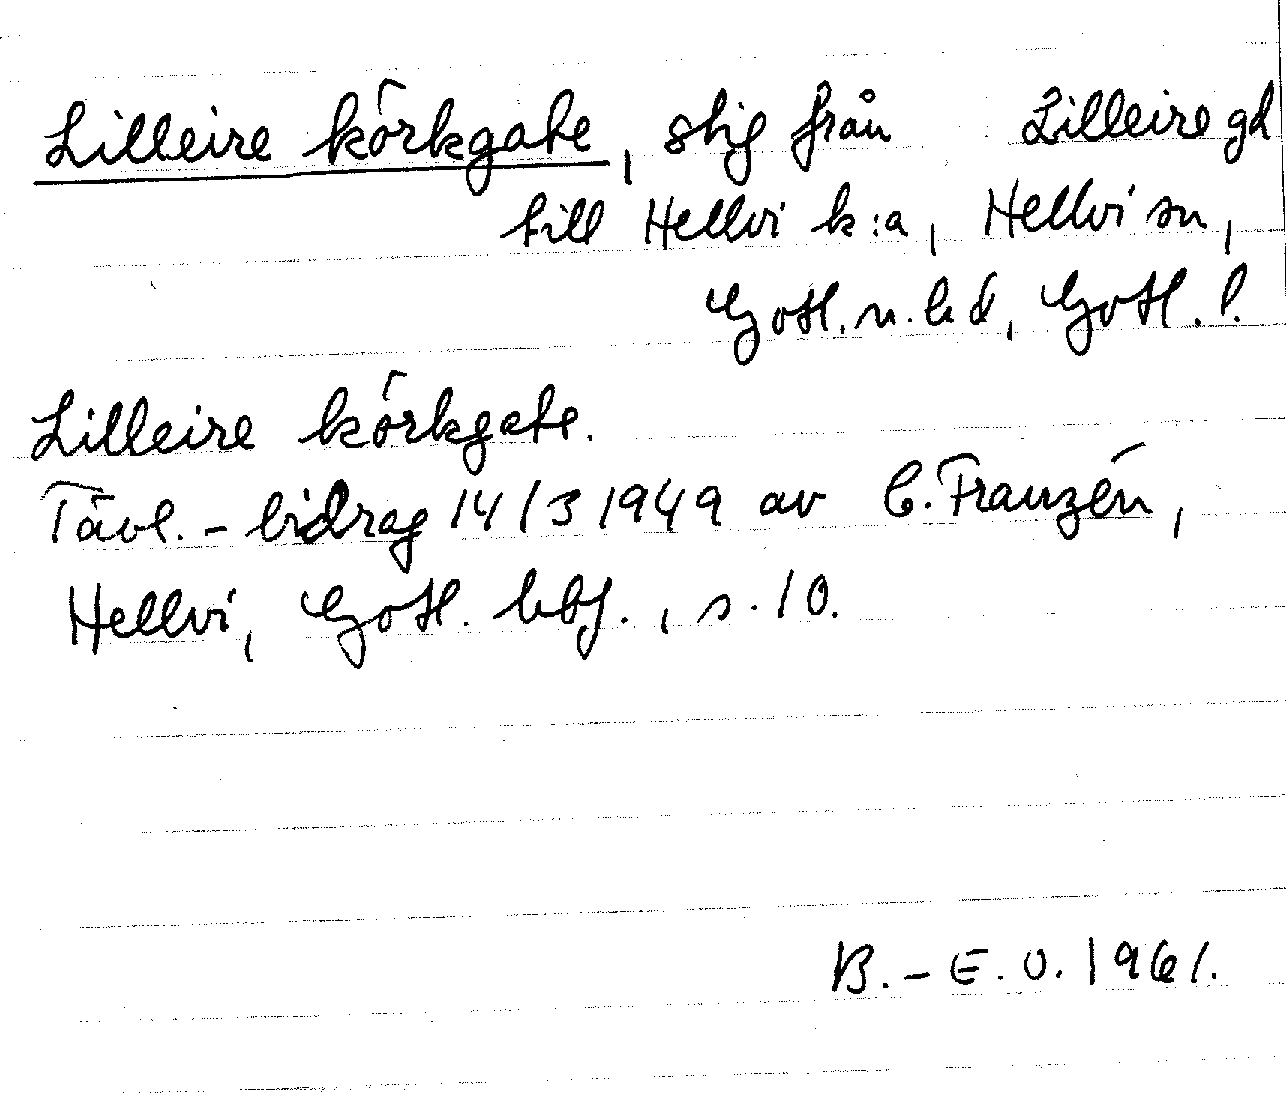 Lilleire körkgate, stig från Lilleire gd
till Hellvi k:a, Hellvi sn,
Gotl. n. hd, Gotl. l.
Lilleire körkgate.
Tävl.-bidrag 14/3 1949 av C. Franzén,
Hellvi, Gotl. hbf., s. 10.
B.-E. O. 1961.